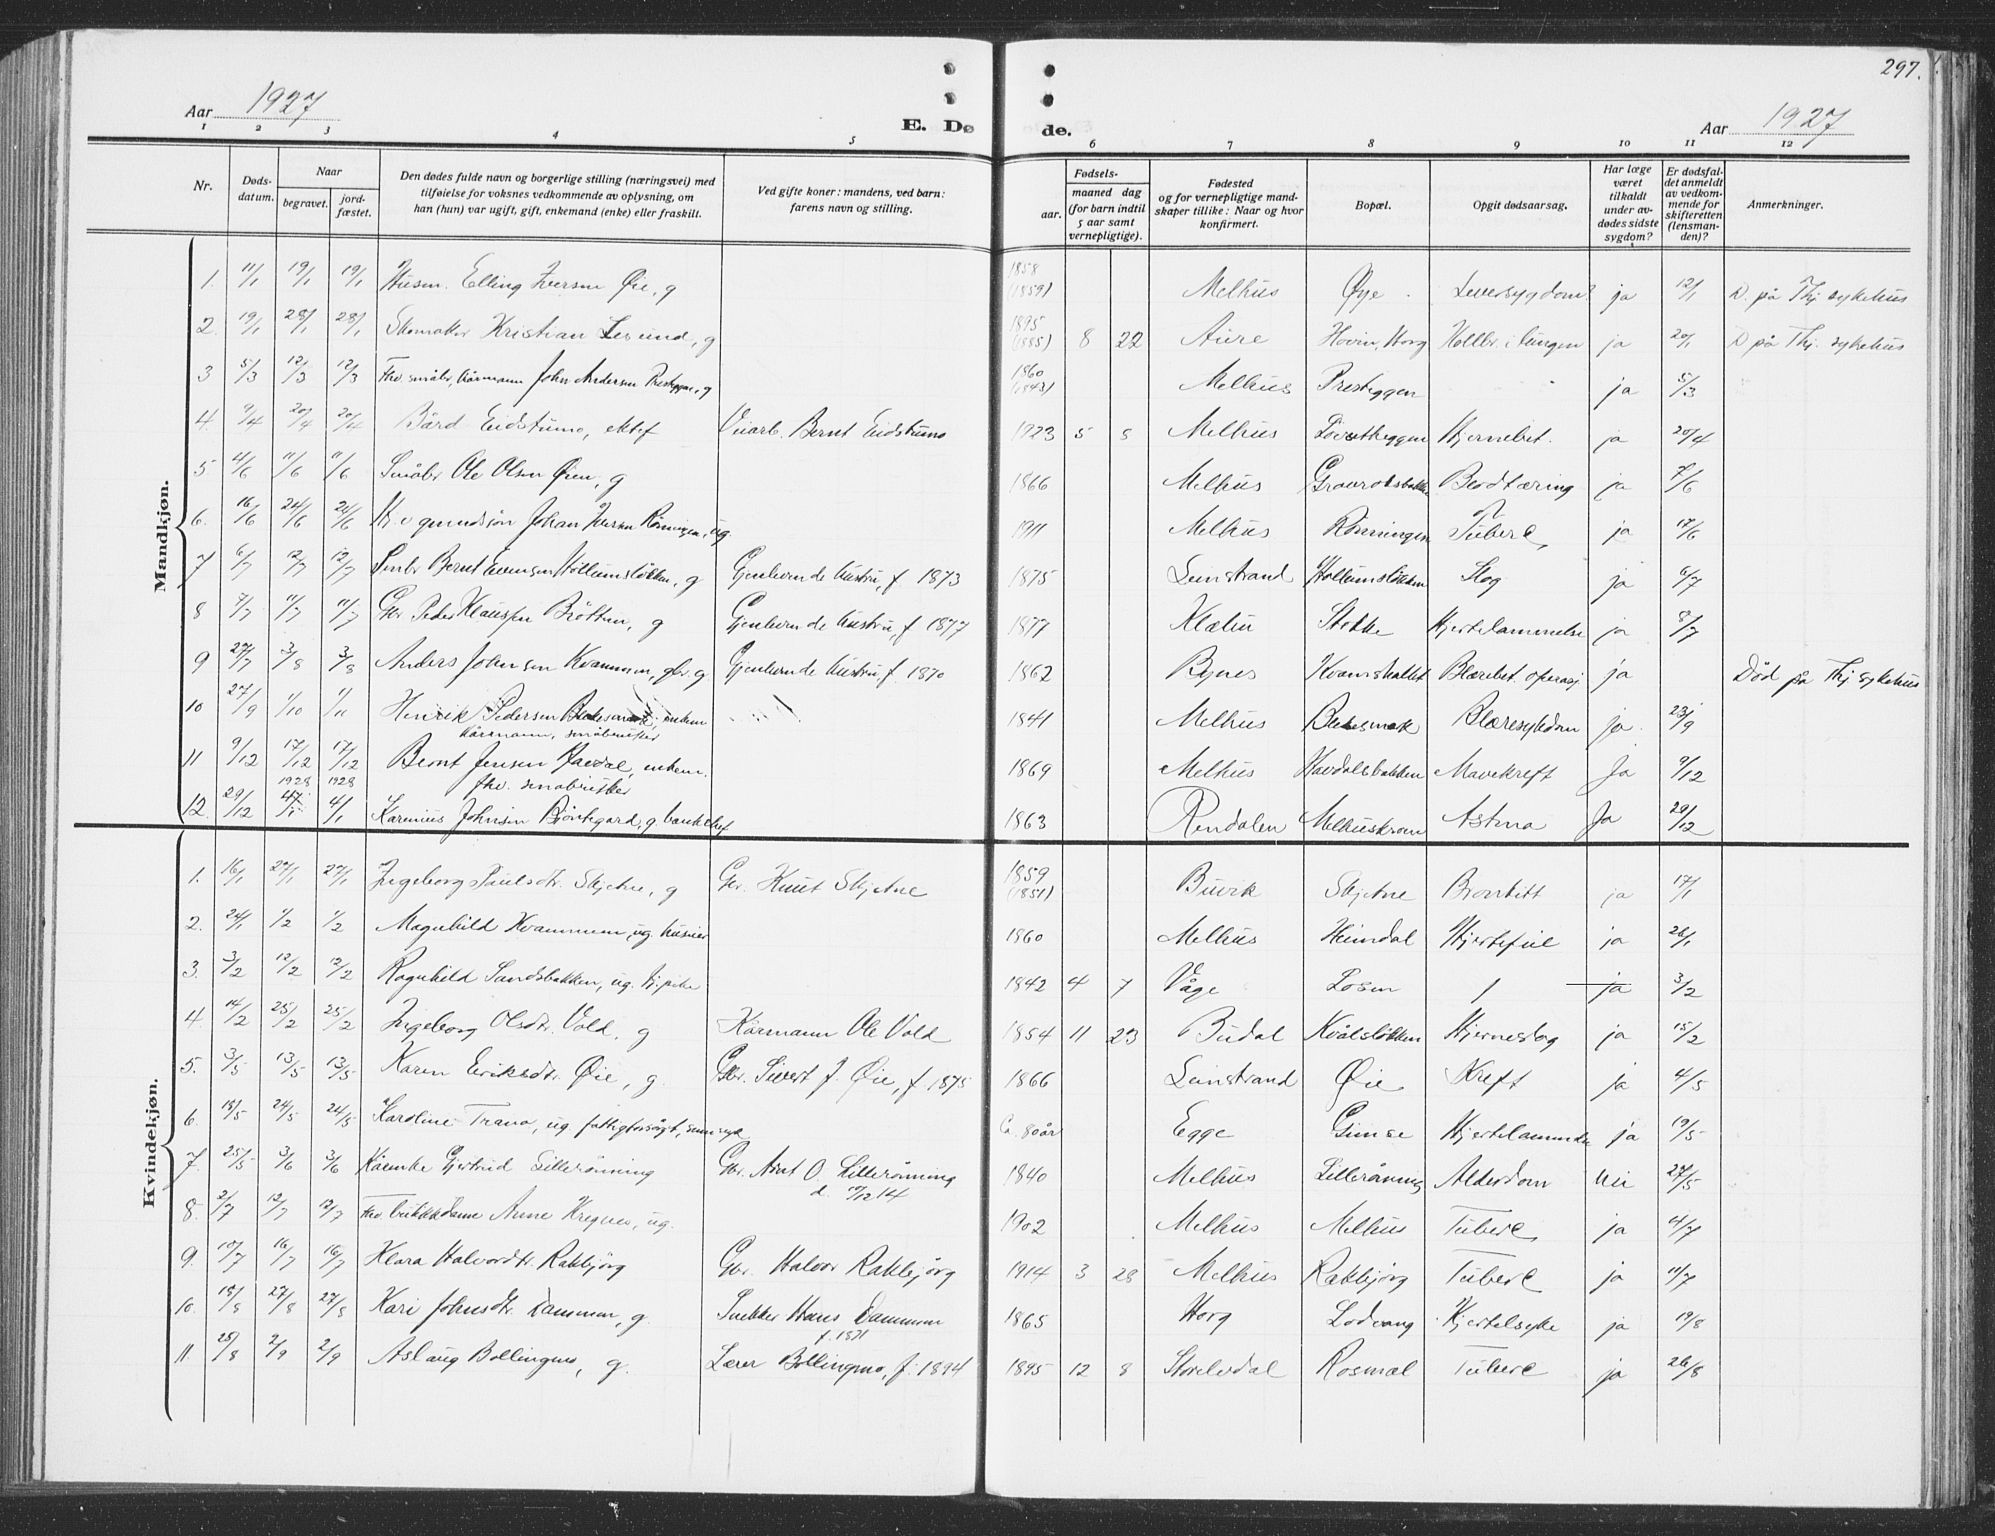 297.
Aar 1927
E. Dø de.
Aar 1927
1 2 3 4 5 6 7 8 9 10 11 12
Nr.
Døds-
datum.
Naar
begravet.
jord-
fæstet.
Den dødes fulde navn og borgerlige stilling (næringsvei) med
tilføielse for voksnes vedkommende av oplysning, om
han (hun) var ugift, gift, enkemand (enke) eller fraskilt.
Ved gifte koner: mandens, ved barn:
farens navn og stilling.
Fødsels-
aar.
maaned dag
(for barn indtil
5 aar samt
vernepligtige).
Fødested
og for vernepligtige mand-
skaper tillike: Naar og hvor
konfirmert.
Bopæl.
Opgit dødsaarsag.
Har læge
været
tilkaldt
under av-
dødes sidste
sygdom?
Er dødsfal-
det anmeldt
av vedkom-
mende for
skifteretten
(lensman-
den)?
Anmerkninger.
Mandkjøn.
1. 11/1 19/1 19/1 Husm. Elling Iversen Øie, g 1858 (1859) Melhus Øye Leversygdom? ja 12/1 D. på Thj sykehus
2. 19/1 28/1 28/1 Skomaker Kristian g 1895 (1885) 8 22 Aure Hovin, Horg i lungen ja 20/1 D på Thj. sykehus
3 5/3 12/3 12/3 Fhv. småbr., kårmann John Andersen g 1860 (1843) Melhus Presteggen ja 5/3
4. 9/4 20/4 20/4 Bård Eidstumo, ektef Viarb. Bernt Eidstumo 1923 5 5 Melhus Hjernebet. ja 20/4
5 4/6 11/6 11/6 Småbr Ole Olsen Øien, g 1866 Melhus Blodtæring ja 7/6
6. 16/6 24/6 24/6 Johan Iversen Rønningen, ug. 1911 Melhus Rønningen Tuberk. ja 17/6
7 6/7 12/7 12/7 Småbr Bernt Evensen Hollumsløkken, g Gjenlevende hustru, f. 1873 1875 Leinstrand Hollumsløkken Slag ja 6/7
8 7/7 11/7 11/7 Gbr Peder Klausen Brøttun, g Gjenlevende hustru, f 1877 1877 Klæbu Stokke Hjertelammelse ja 8/7
9 27/7 3/8 3/8 Anders Johnsen Kvammen, gbr. g. Gjenlevende hustru f. 1870 1862 Bynes Kvamshallet Blærebet. operasj. ja Død på Thj sykehus
10 27/9 1/10 1/11 Henrik Pedersen enkem 1841 Melhus Blæresykdom ja. 23/9
kårmann, småbruker
11 9/12 17/12 17/12 Bernt Jensen Havdal, enkem. 1869 Melhus Havdalsbakken Mavekreft Ja 9/12
fhv. småbruker
1928 1928
12. 29/12 4/1 4/1 Karenius Johnsen Bjøntegard, g banksjef 1863 Rendalen Melhuskroen Astma Ja 29/12
Kvindekjøn.
1. 16/1 27/1 27/1 Ingeborg Paulsdtr. Skjetne, g Gbr. Knut Skjetne 1859 (1851) Buvik Skjetne Bronkitt ja 17/1
2. 24/1 1/2 1/2 Magnhild Kvammen, ug. huseier 1860 Melhus Heimdal Hjertefeil ja 26/1
3. 3/2 12/2 12/2 Ragnhild Sandsbakken, ug. tj. pike 1842 4 7 Våge Losen 1 ja 3/2
4 14/2 25/2 25/2 Ingeborg Olsdtr. Vold, g Kårmann Ole Vold 1854 11 23 Budal Kvålsløkken Hjerneslag ja 15/2
5. 3/5 13/5 13/5 Karen Eriksdtr. Øie, g. Gbr. Sivert J. Øie, f. 1875 1866 Leinstrand Øie Kreft ja 4/5
6. 18/5 24/5 24/5 Karoline Trana, ug. fattigforsørgt, sinnsyk Ca. 80 år Egge Gimse Hjertelammelse ja 19/5
7. 25/5 3/6 3/6 Kårenke Gjertrud Lillerønning Gbr. Arnt O. Lillerønning 1840 Melhus Lillerønning Alderdom Nei 27/5
8. 2/7 12/7 12/7 Fhv. butikkdame Anne Kregnes, ug. 1902 Melhus Melhus Tuberk. ja 4/7
9. 10/7 16/7 16/7 Klara Halvordtr. Rakbjørg Gbr. Halvor Rakbjørg 1914 3 28 Melhus Rakbjørg Tuberk ja 11/7
10. 18/8 27/8 27/8 Kari Johnsdtr. Dammen, g. Snekker Hans Dammen 1865 Horg Lodvang Kjertelsyke ja 19/8
f. 1871
11 25/8 2/9 2/9 Aslaug Bollingmo, g. Lærer Bollingmo, f. 1894 1895 12 8 Storelvdal Rosmæl Tuberk ja 26/8